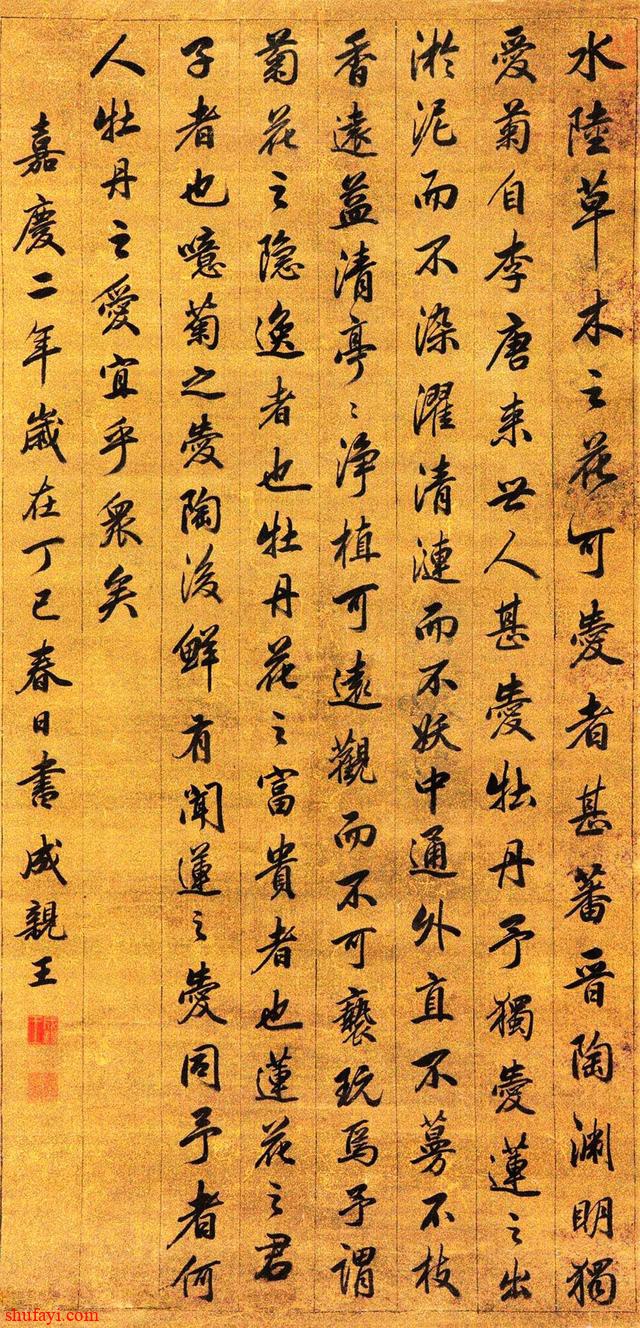 水陸草木之花可愛者甚蕃晉陶淵明獨
愛菊自李唐来世人甚愛牡丹予獨愛蓮之出
淤泥而不染濯清漣而不妖中通外直不蔓不枝
香遠益清亭〻淨植可遠觀而不可褻玩焉予謂
菊花之隐逸者也牡丹花之富貴者也蓮花之君
子者也噫菊之愛陶後鮮有聞蓮之愛同予者何
人牡丹之愛宜乎衆矣
嘉慶二年歲在丁巳春日書成親王
shufayi.com